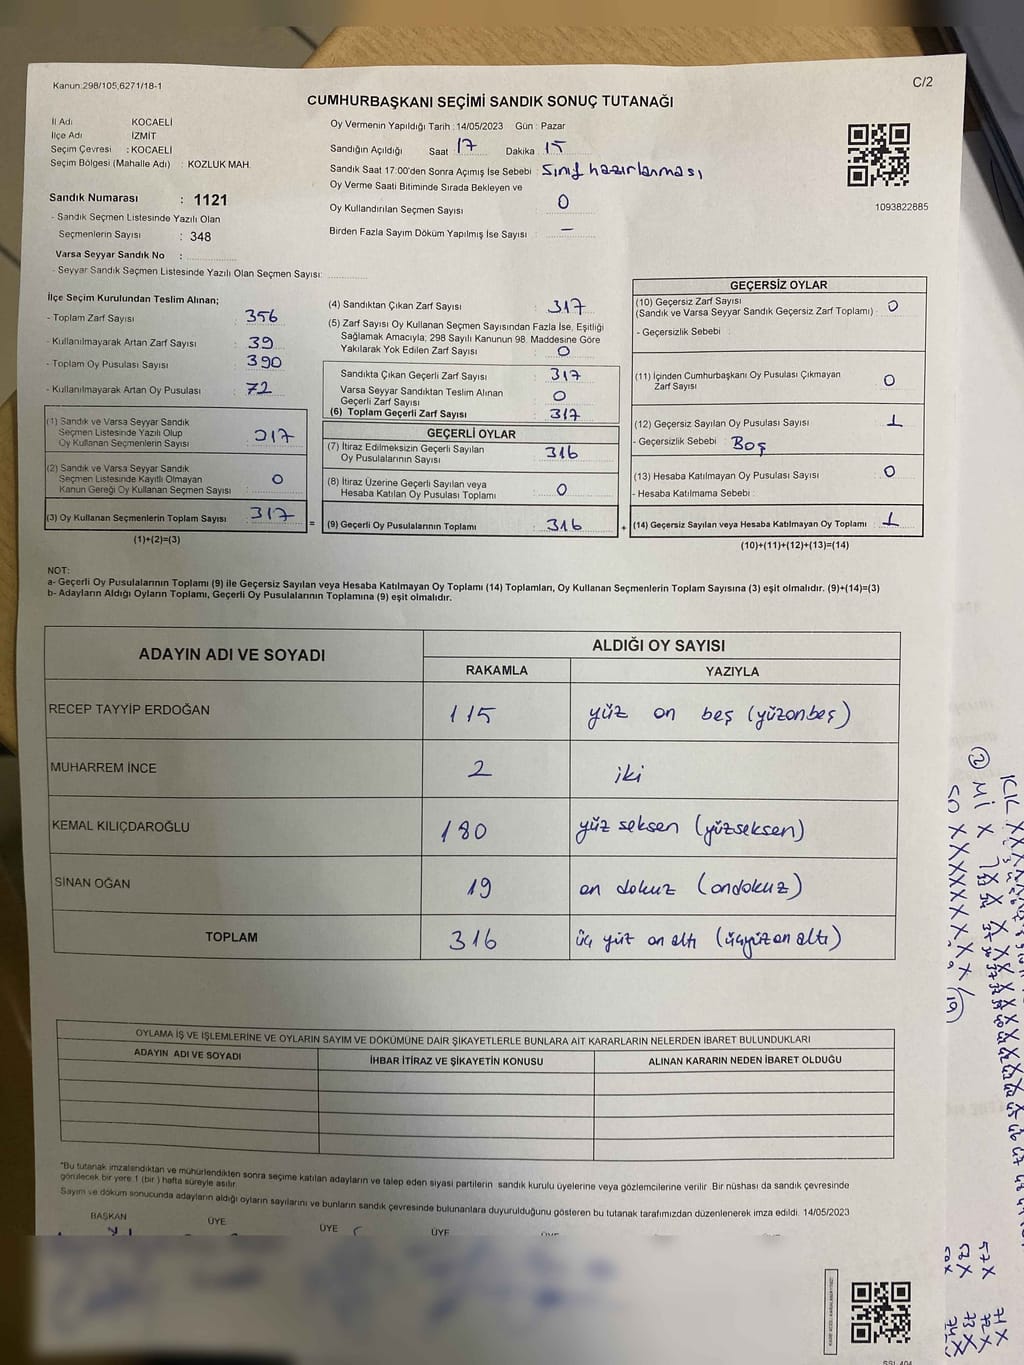 Kanun:298/105,6271/18-1
C/2
CUMHURBAŞKANI SEÇİMİ SANDIK SONUÇ TUTANAĞI
İl Adı KOCAELİ
İlçe Adı İZMİT
Seçim Çevresi : KOCAELİ
Seçim Bölgesi (Mahalle Adı) : KOZLUK MAH.
Sandık Numarası : 1121
- Sandık Seçmen Listesinde Yazılı Olan
Seçmenlerin Sayısı : 348
Varsa Seyyar Sandık No :
- Seyyar Sandık Seçmen Listesinde Yazılı Olan Seçmen Sayısı:
Oy Vermenin Yapıldığı Tarih : 14/05/2023 Gün : Pazar
Sandığın Açıldığı Saat 17 Dakika 15
Sandık Saat 17:00'den Sonra Açımış İse Sebebi : Sınıf hazırlanması
Oy Verme Saati Bitiminde Sırada Bekleyen ve
Oy Kullandırılan Seçmen Sayısı : 0
Birden Fazla Sayım Döküm Yapılmış İse Sayısı : –
1093822885
İlçe Seçim Kurulundan Teslim Alınan;
- Toplam Zarf Sayısı : 356
- Kullanılmayarak Artan Zarf Sayısı : 39
- Toplam Oy Pusulası Sayısı : 390
- Kullanılmayarak Artan Oy Pusulası : 72
(1) Sandık ve Varsa Seyyar Sandık
Seçmen Listesinde Yazılı Olup
Oy Kullanan Seçmenlerin Sayısı : 317
(2) Sandık ve Varsa Seyyar Sandık
Seçmen Listesinde Kayıtlı Olmayan
Kanun Gereği Oy Kullanan Seçmen Sayısı : 0
(3) Oy Kullanan Seçmenlerin Toplam Sayısı : 317
(1)+(2)=(3)
=
(4) Sandıktan Çıkan Zarf Sayısı : 317
(5) Zarf Sayısı Oy Kullanan Seçmen Sayısından Fazla İse, Eşitliği
Sağlamak Amacıyla; 298 Sayılı Kanunun 98. Maddesine Göre
Yakılarak Yok Edilen Zarf Sayısı : 0
Sandıkta Çıkan Geçerli Zarf Sayısı : 317
Varsa Seyyar Sandıktan Teslim Alınan
Geçerli Zarf Sayısı : 0
(6) Toplam Geçerli Zarf Sayısı : 317
GEÇERLİ OYLAR
(7) İtiraz Edilmeksizin Geçerli Sayılan
Oy Pusulalarının Sayısı : 316
(8) İtiraz Üzerine Geçerli Sayılan veya
Hesaba Katılan Oy Pusulası Toplamı : 0
(9) Geçerli Oy Pusulalarının Toplamı : 316
+
GEÇERSİZ OYLAR
(10) Geçersiz Zarf Sayısı
(Sandık ve Varsa Seyyar Sandık Geçersiz Zarf Toplamı) : 0
- Geçersizlik Sebebi :
(11) İçinden Cumhurbaşkanı Oy Pusulası Çıkmayan
Zarf Sayısı : 0
(12) Geçersiz Sayılan Oy Pusulası Sayısı : 1
- Geçersizlik Sebebi : Boş
(13) Hesaba Katılmayan Oy Pusulası Sayısı : 0
- Hesaba Katılmama Sebebi :
(14) Geçersiz Sayılan veya Hesaba Katılmayan Oy Toplamı : 1
(10)+(11)+(12)+(13)=(14)
NOT:
a- Geçerli Oy Pusulalarının Toplamı (9) ile Geçersiz Sayılan veya Hesaba Katılmayan Oy Toplamı (14) Toplamları, Oy Kullanan Seçmenlerin Toplam Sayısına (3) eşit olmalıdır. (9)+(14)=(3)
b- Adayların Aldığı Oyların Toplamı, Geçerli Oy Pusulalarının Toplamına (9) eşit olmalıdır.
ADAYIN ADI VE SOYADI
ALDIĞI OY SAYISI
RAKAMLA YAZIYLA
RECEP TAYYİP ERDOĞAN 115 yüz on beş (yüzonbeş)
MUHARREM İNCE 2 iki
KEMAL KILIÇDAROĞLU 180 yüz seksen (yüzseksen)
SİNAN OĞAN 19 on dokuz (ondokuz)
TOPLAM 316 üç yüz on altı (üçyüzon altı)
OYLAMA İŞ VE İŞLEMLERİNE VE OYLARIN SAYIM VE DÖKÜMÜNE DAİR ŞİKAYETLERLE BUNLARA AİT KARARLARIN NELERDEN İBARET BULUNDUKLARI
ADAYIN ADI VE SOYADI İHBAR İTİRAZ VE ŞİKAYETİN KONUSU ALINAN KARARIN NEDEN İBARET OLDUĞU
*Bu tutanak imzalandıktan ve mühürlendikten sonra seçime katılan adayların ve talep eden siyasi partilerin sandık kurulu üyelerine veya gözlemcilerine verilir. Bir nüshası da sandık çevresinde
görülecek bir yere 1 (bir) hafta süreyle asılır.
Sayım ve döküm sonucunda adayların aldığı oyların sayılarını ve bunların sandık çevresinde bulunanlara duyurulduğunu gösteren bu tutanak tarafımızdan düzenlenerek imza edildi. 14/05/2023
BAŞKAN ÜYE ÜYE ÜYE